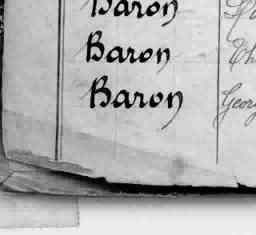 Baron
Baron
Baron Georg